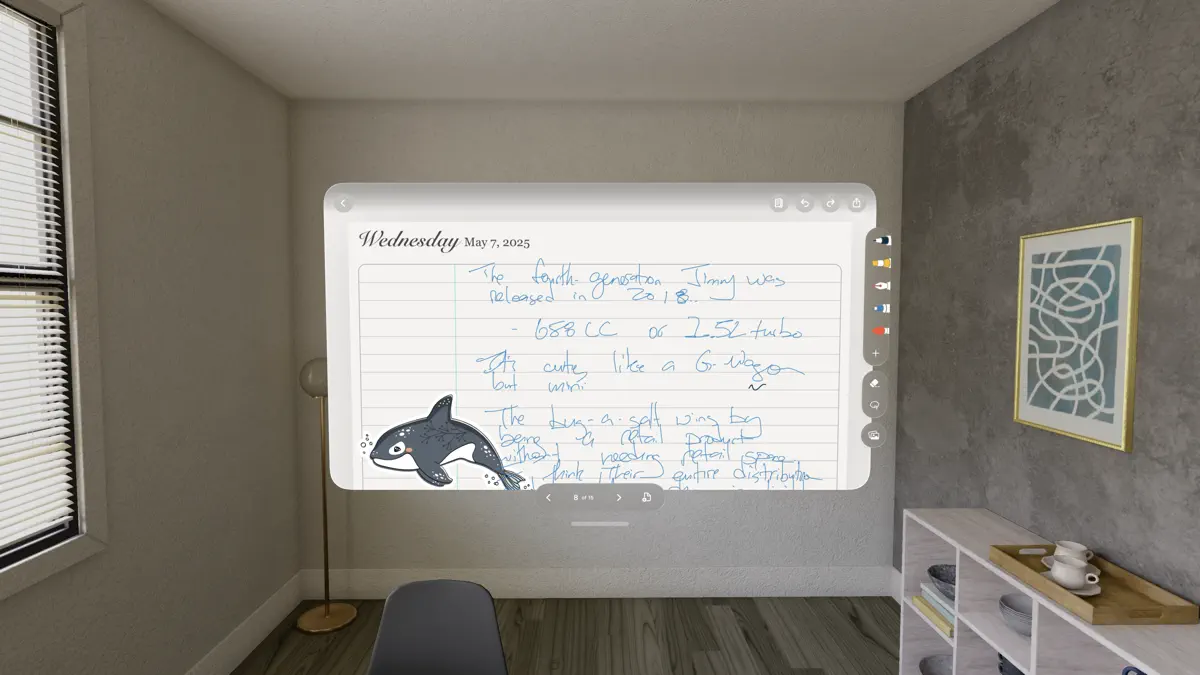 Wednesday May 7, 2025
The fourth-generation Jimny was
released in 2018.
- 658 CC or 1.5L turbo
It's cute, like a G-Wagon
but mini
The bug-a-salt wins by
being a retail product
without needing retail space
I think their entire distribution
8 OF 15